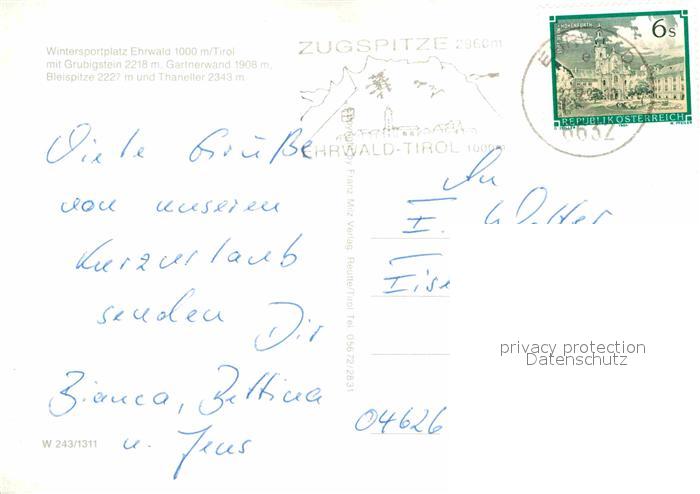 Wintersportplatz Ehrwald 1000 m/Tirol
mit Grubigstein 2218 m, Gartnerwand 1908 m,
Bleispitze 2227 m und Thaneller 2343 m.
ZUGSPITZE 2960m
EHRWALD-TIROL 1000m
6632
6s
REPUBLIK ÖSTERREICH
Viele Grüße
von unserem
Kurzurlaub
senden Dir
Bianca, Bettina
u. Jens
W 243/1311
Franz Milz Verlag, Reutte/Tirol Tel. 05672/2831
An
I.
04626
privacy protection
Datenschutz